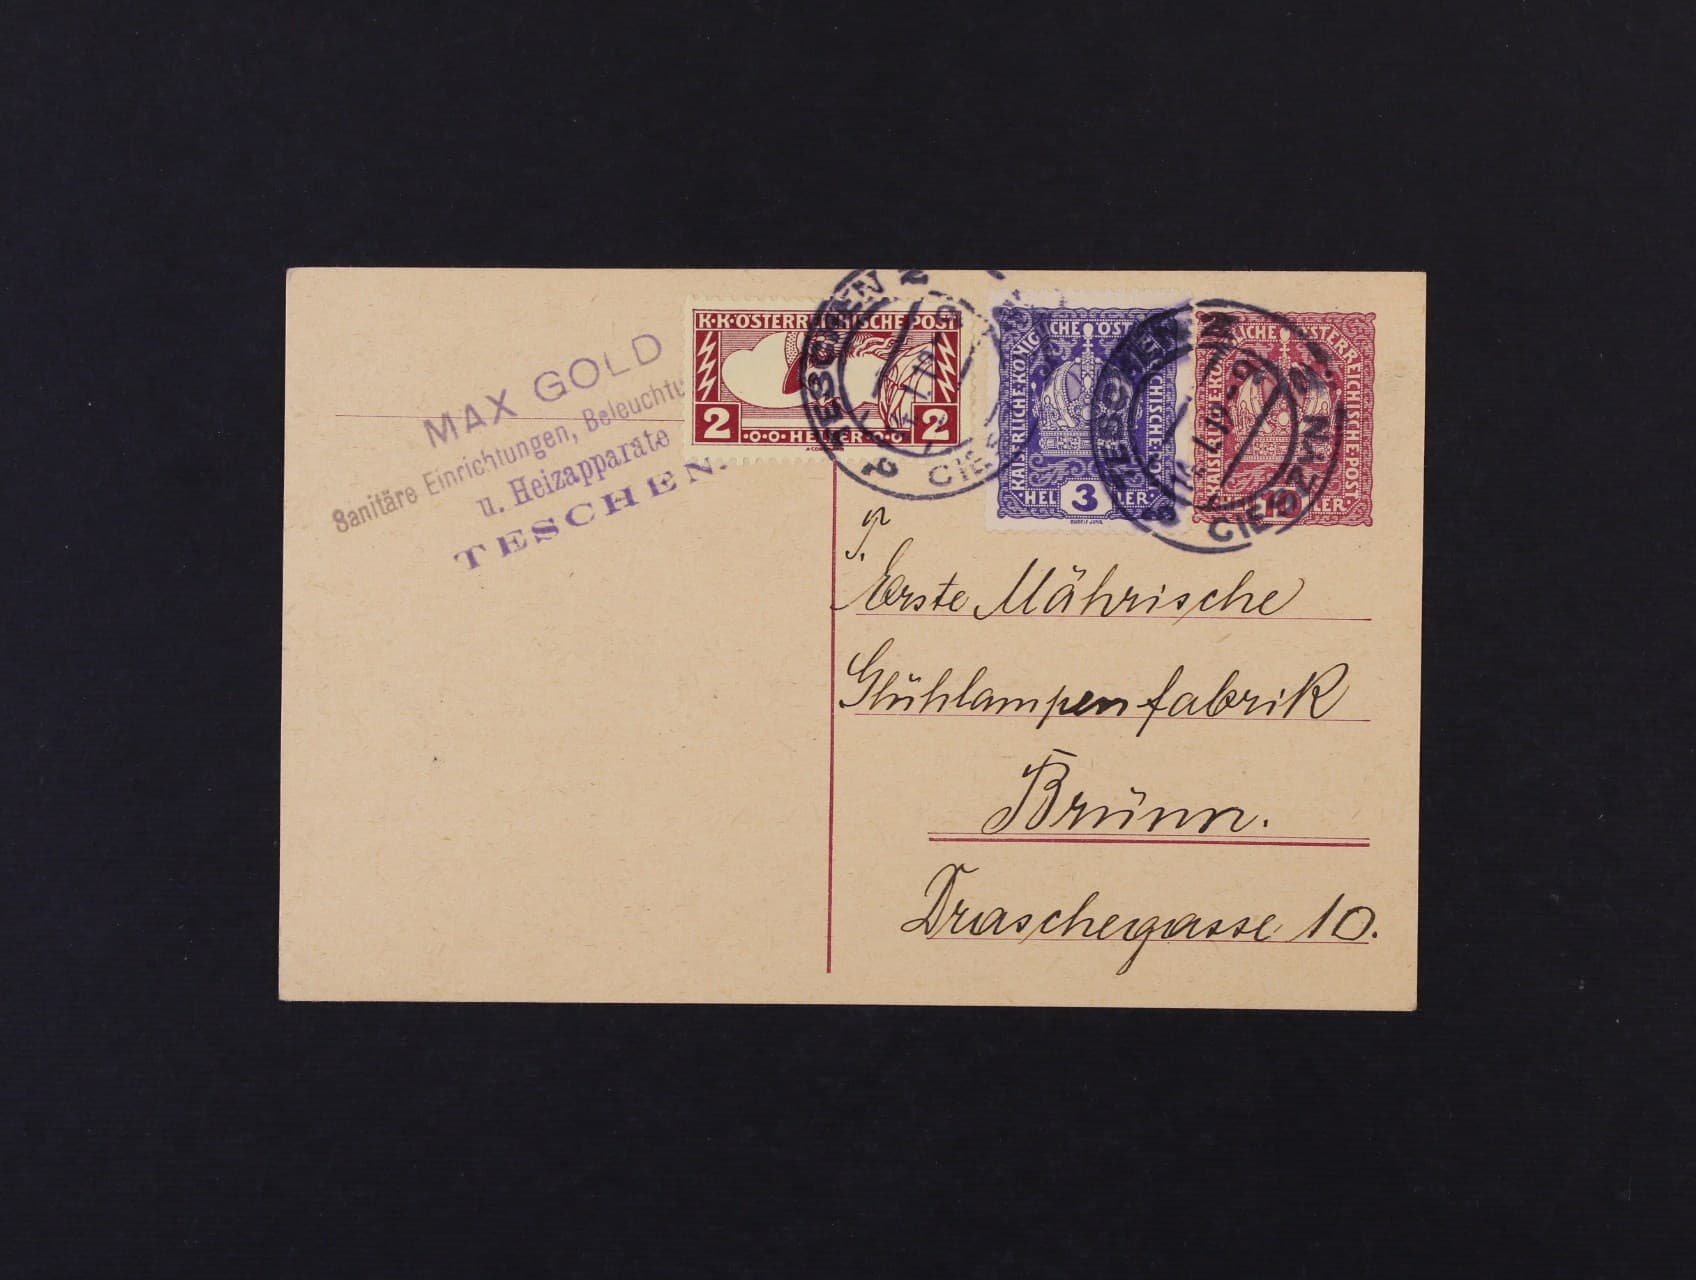 MAX GOLD
Sanitäre Einrichtungen, Beleuchtu
u. Heizapparate
TESCHEN.
K·K·ÖSTERREICHISCHE·POST
2 HELLER 2
KAISERLICHE·KÖNIGLICHE ÖSTERREICHISCHE·POST
HELLER
3
RUDOLF JUNK
KAISERLICHE·KÖNIGLICHE ÖSTERREICHISCHE·POST
HELLER
10
TESCHEN
CIESZYN
TESCHEN
CIESZYN
P.
T.
Erste Mährische
Glühlampenfabrik
Brünn.
Draschegasse 10.